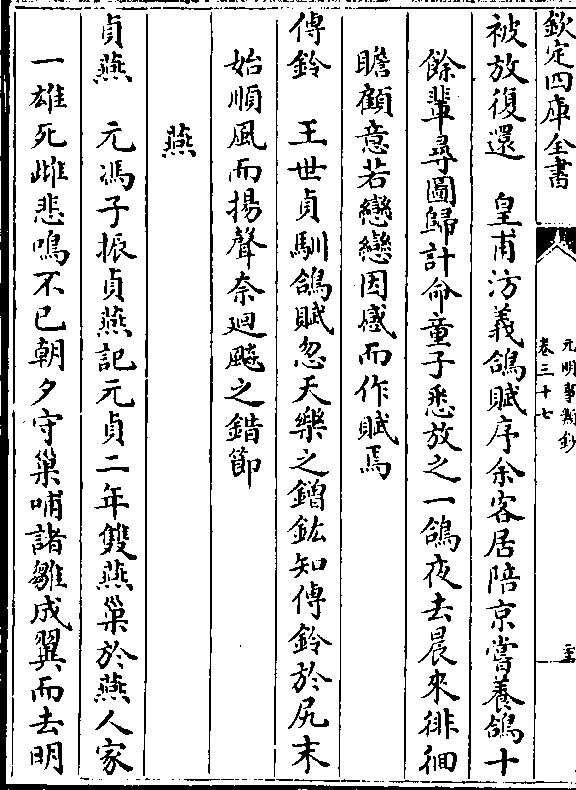 欽定四庫全書
元明事類鈔
卷三十七
被放復還　皇甫汸義鴿賦序余客居陪京嘗養鴿十
餘輩尋圖歸計命童子悉放之一鴿夜去晨來徘徊
瞻顧意若戀戀因感而作賦焉
傅鈴　王世貞馴鴿賦忽天樂之鏳鈜知傅鈴於尻末
始順風而揚聲奈廻飈之錯節
燕
貞燕　元馮子振貞燕記元貞二年雙燕巢於燕人家
一雄死雌悲鳴不已朝夕守巢哺諸雛成翼而去明